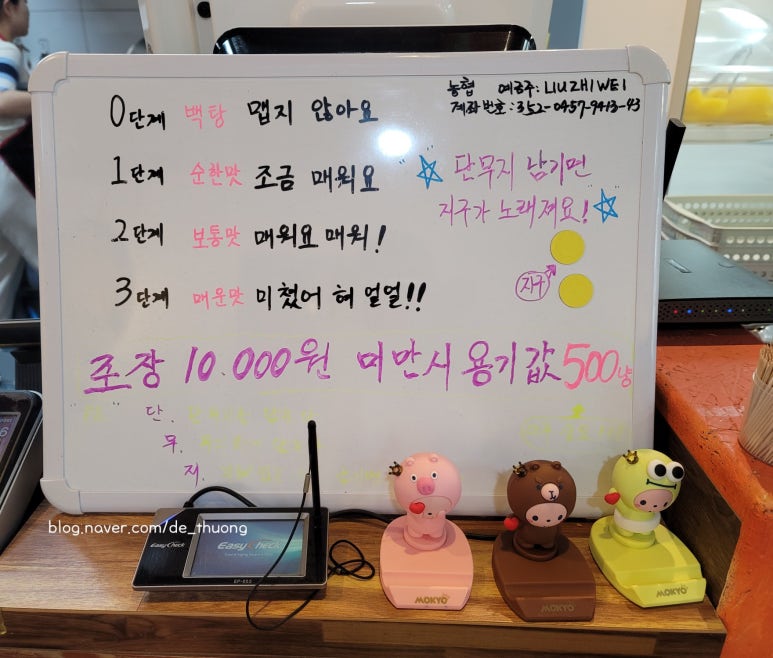 0단계 백탕 맵지 않아요
농협 예금주: LIU ZHI WEI
계좌번호: 352-0457-9413-43
1단계 순한맛 조금 매워요
"☆ 단무지 남기면
지구가 노래져요! ☆"
2단계 보통맛 매워요 매워!
3단계 매운맛 미쳤어 혀 얼얼!!
지구
포장 10.000원 미만시 용기값 500냥
단.
무.
지.
blog.naver.com/de_thuong
EasyCheck
EasyCheck
MOKYO
MOKYO
MOKYO